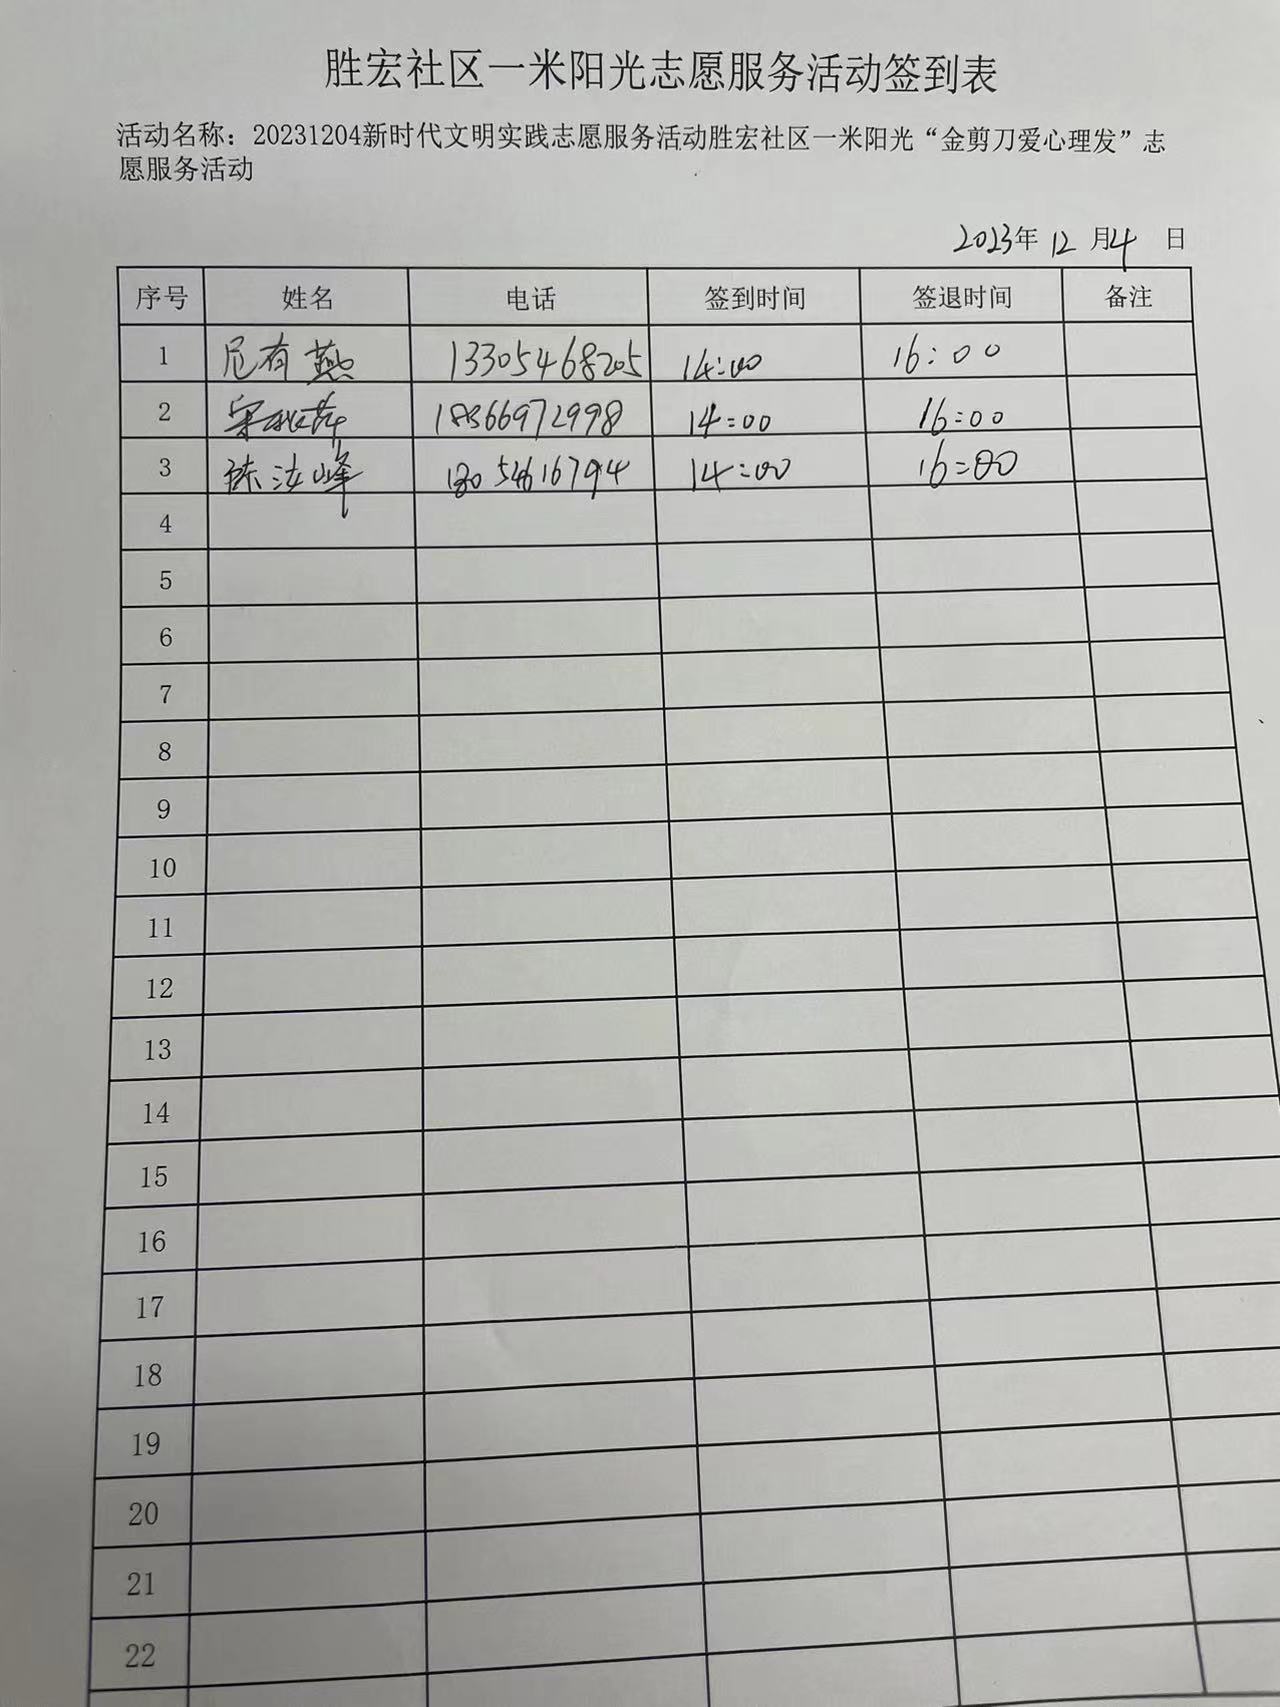 胜宏社区一米阳光志愿服务活动签到表
活动名称：20231204新时代文明实践志愿服务活动胜宏社区一米阳光“金剪刀爱心理发”志
愿服务活动
2023年 12 月4 日
序号 姓名 电话 签到时间 签退时间 备注
1 尼有燕 13305468205 14:00 16:00
2 宋秋萍 18366972998 14:00 16:00
3 陈汝峰 14:00 16:00
4
5
6
7
8
9
10
11
12
13
14
15
16
17
18
19
20
21
22